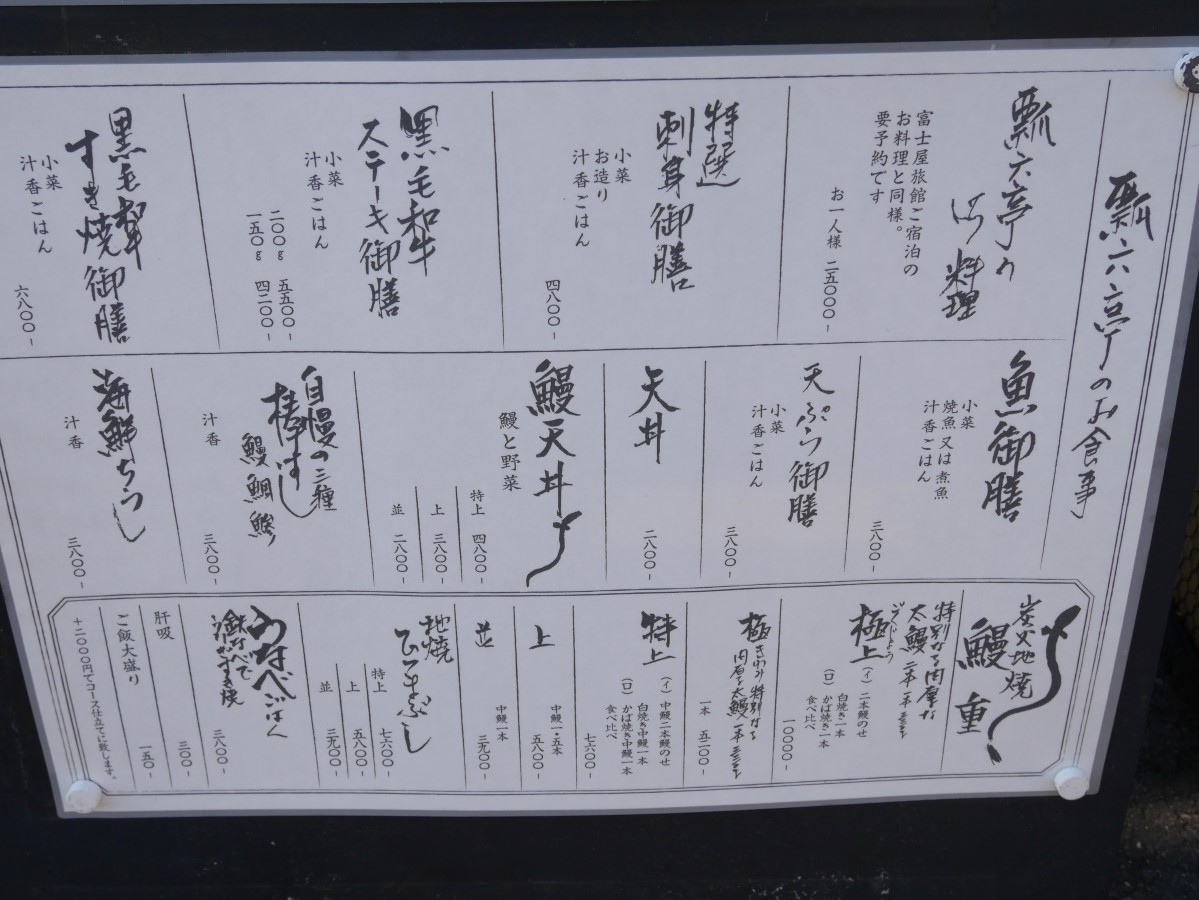 瓢六亭のお食事
瓢六亭の
料理
富士屋旅館ご宿泊の
お料理と同様。
要予約です
お一人様 二五〇〇〇-
特選
刺身御膳
小菜
お造り
汁香ごはん
四八〇〇-
黒毛和牛
ステーキ御膳
小菜
汁香ごはん
二〇〇g 五五〇〇-
一五〇g 四二〇〇-
黒毛和牛
すき焼御膳
小菜
汁香ごはん
六八〇〇-
魚御膳
小菜
焼魚又は煮魚
汁香ごはん
三八〇〇-
天ぷら御膳
小菜
汁香ごはん
三八〇〇-
天丼
二八〇〇-
鰻天丼
鰻と野菜
特上 四八〇〇-
上 三八〇〇-
並 二八〇〇-
自慢の三種
棒すし
鰻 鯛 鯵
汁香
三八〇〇-
海鮮ちらし
汁香
三八〇〇-
炭火地焼
鰻重
特別なる肉厚な
太鰻 二本
ごくじょう
極上
(イ) 二本鰻のせ
(ロ) 白焼き一本
かば焼き一本
食べ比べ
一〇〇〇〇-
極 きわみ 特別なる
肉厚な太鰻 一本
一本 五二〇〇-
特上
(イ) 中鰻二本鰻のせ
(ロ) 白焼き中鰻一本
かば焼き中鰻一本
食べ比べ
七六〇〇-
上
中鰻一・五本
五八〇〇-
並
中鰻一本
三九〇〇-
地焼
ひつまぶし
特上 七六〇〇-
上 五八〇〇-
並 三九〇〇-
うなべごはん
三八〇〇-
肝吸
三〇〇-
ご飯大盛り
一五〇-
+二〇〇〇円でコース仕立てに致します。